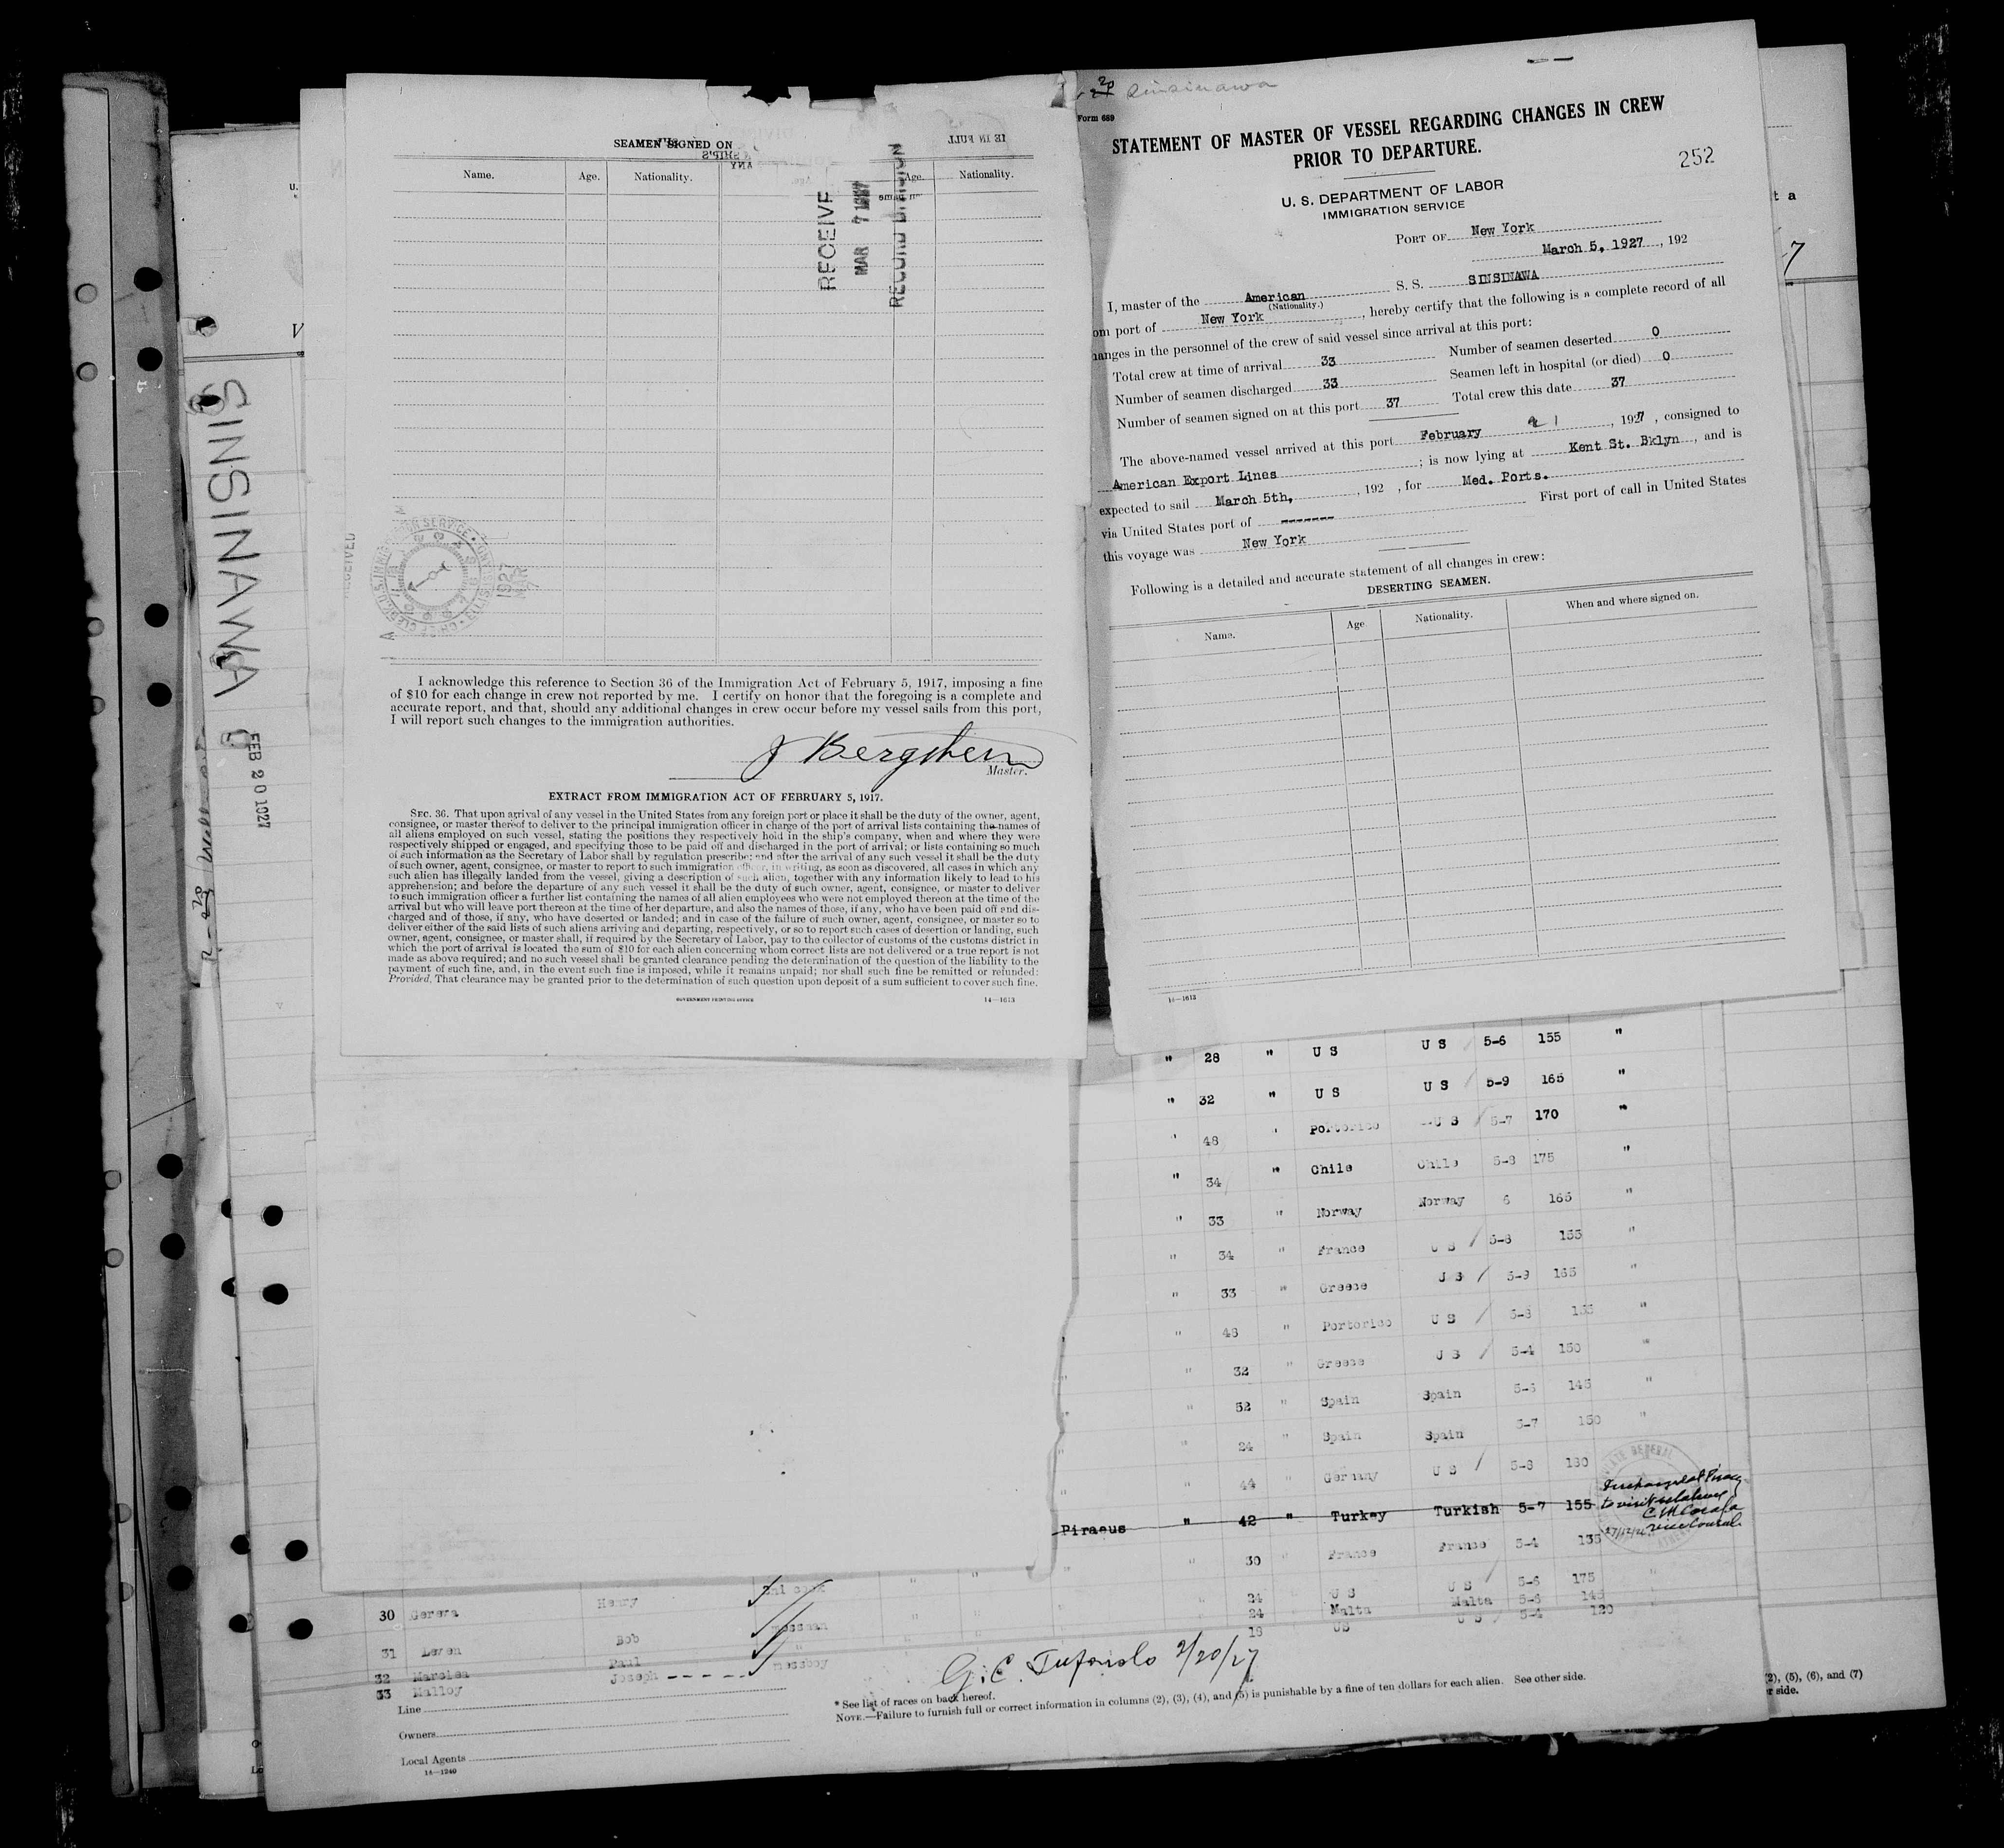 SEAMEN SIGNED ON
Name. Age. Nationality. Age. Nationality.
RECEIVE
MAR 7 1927
RECORD DIVISION
SINSINAWA
FEB 20 1927
RECEIVED
1927
MAR
I acknowledge this reference to Section 36 of the Immigration Act of February 5, 1917, imposing a fine
of $10 for each change in crew not reported by me. I certify on honor that the foregoing is a complete and
accurate report, and that, should any additional changes in crew occur before my vessel sails from this port,
I will report such changes to the immigration authorities.
Master.
EXTRACT FROM IMMIGRATION ACT OF FEBRUARY 5, 1917.
SEC. 36. That upon arrival of any vessel in the United States from any foreign port or place it shall be the duty of the owner, agent,
consignee, or master thereof to deliver to the principal immigration officer in charge of the port of arrival lists containing the names of
all aliens employed on such vessel, stating the positions they respectively hold in the ship's company, when and where they were
respectively shipped or engaged, and specifying those to be paid off and discharged in the port of arrival; or lists containing so much
of such information as the Secretary of Labor shall by regulation prescribe; and after the arrival of any such vessel it shall be the duty
of such owner, agent, consignee, or master to report to such immigration officer, in writing, as soon as discovered, all cases in which any
such alien has illegally landed from the vessel, giving a description of such alien, together with any information likely to lead to his
apprehension; and before the departure of any such vessel it shall be the duty of such owner, agent, consignee, or master to deliver
to such immigration officer a further list containing the names of all alien employees who were not employed thereon at the time of the
arrival but who will leave port thereon at the time of her departure, and also the names of those, if any, who have been paid off and dis-
charged and of those, if any, who have deserted or landed; and in case of the failure of such owner, agent, consignee, or master so to
deliver either of the said lists of such aliens arriving and departing, respectively, or so to report such cases of desertion or landing, such
owner, agent, consignee, or master shall, if required by the Secretary of Labor, pay to the collector of customs of the customs district in
which the port of arrival is located the sum of $10 for each alien concerning whom correct lists are not delivered or a true report is not
made as above required; and no such vessel shall be granted clearance pending the determination of the question of the liability to the
payment of such fine, and, in the event such fine is imposed, while it remains unpaid; nor shall such fine be remitted or refunded:
Provided, That clearance may be granted prior to the determination of such question upon deposit of a sum sufficient to cover such fine.
GOVERNMENT PRINTING OFFICE 14—1613
Sinsinawa
Form 689
STATEMENT OF MASTER OF VESSEL REGARDING CHANGES IN CREW
PRIOR TO DEPARTURE.
252
U. S. DEPARTMENT OF LABOR
IMMIGRATION SERVICE
PORT OF New York
March 5, 1927, 192
I, master of the American S. S. SINSINAWA
(Nationality.)
om port of New York, hereby certify that the following is a complete record of all
hanges in the personnel of the crew of said vessel since arrival at this port:
Total crew at time of arrival 33 Number of seamen deserted 0
Number of seamen discharged 33 Seamen left in hospital (or died) 0
Number of seamen signed on at this port 37 Total crew this date 37
The above-named vessel arrived at this port February 21, 1927, consigned to
American Export Lines; is now lying at Kent St. Bklyn, and is
expected to sail March 5th, , 192 , for Med. Ports.
via United States port of ------- First port of call in United States
this voyage was New York
Following is a detailed and accurate statement of all changes in crew:
DESERTING SEAMEN.
Name. Age Nationality. When and where signed on.
14—1613
" 28 " U S U S / 5-6 155 "
" 32 " U S U S / 5-9 165 "
" 48 " Portorico U S / 5-7 170 "
" 34 " Chile Chile 5-8 175 "
" 33 " Norway Norway 6 165 "
" 34 " France U S / 5-8 155 "
" 33 " Greece U S / 5-9 165 "
" 48 " Portorico U S / 5-8 "
" 32 " Greece U S / 5-4 150 "
" 52 " Spain Spain 145 "
" 24 " Spain Spain 5-7 150 "
" 44 " Germany U S / 5-8 180
Piraeus " 42 " Turkey Turkish 5-7 155
to visit relatives
Vice Consul
" 30 " France France 5-4 135
24 U S U S / 5-6 175
24 Malta Malta 5-6 145
18 US U S / 5-4 120
30 Henry
31 Bob messman
32 Paul "
33 Malloy Joseph messboy
G. C. 2/20/27
Line
Owners
Local Agents
14—1240
* See list of races on back hereof.
NOTE.—Failure to furnish full or correct information in columns (2), (3), (4), and (5) is punishable by a fine of ten dollars for each alien. See other side.
(2), (5), (6), and (7)
r side.